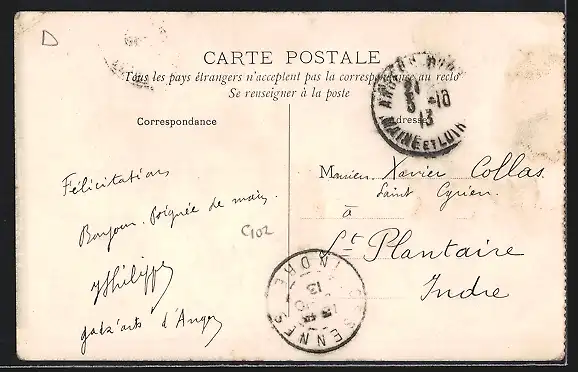 D
CARTE POSTALE
Tous les pays étrangers n'acceptent pas la correspondance au recto
Se renseigner à la poste
Correspondance
Adresse
21
5 -10
13
MAINE ET LOIR
Félicitations
Bonjour. Poignée de main.
C102
Philippe
gadz'arts d'Angers
Monsieur Xavier Collas
Saint Cyrien
à
St Plantaire
Indre
INDRE
13